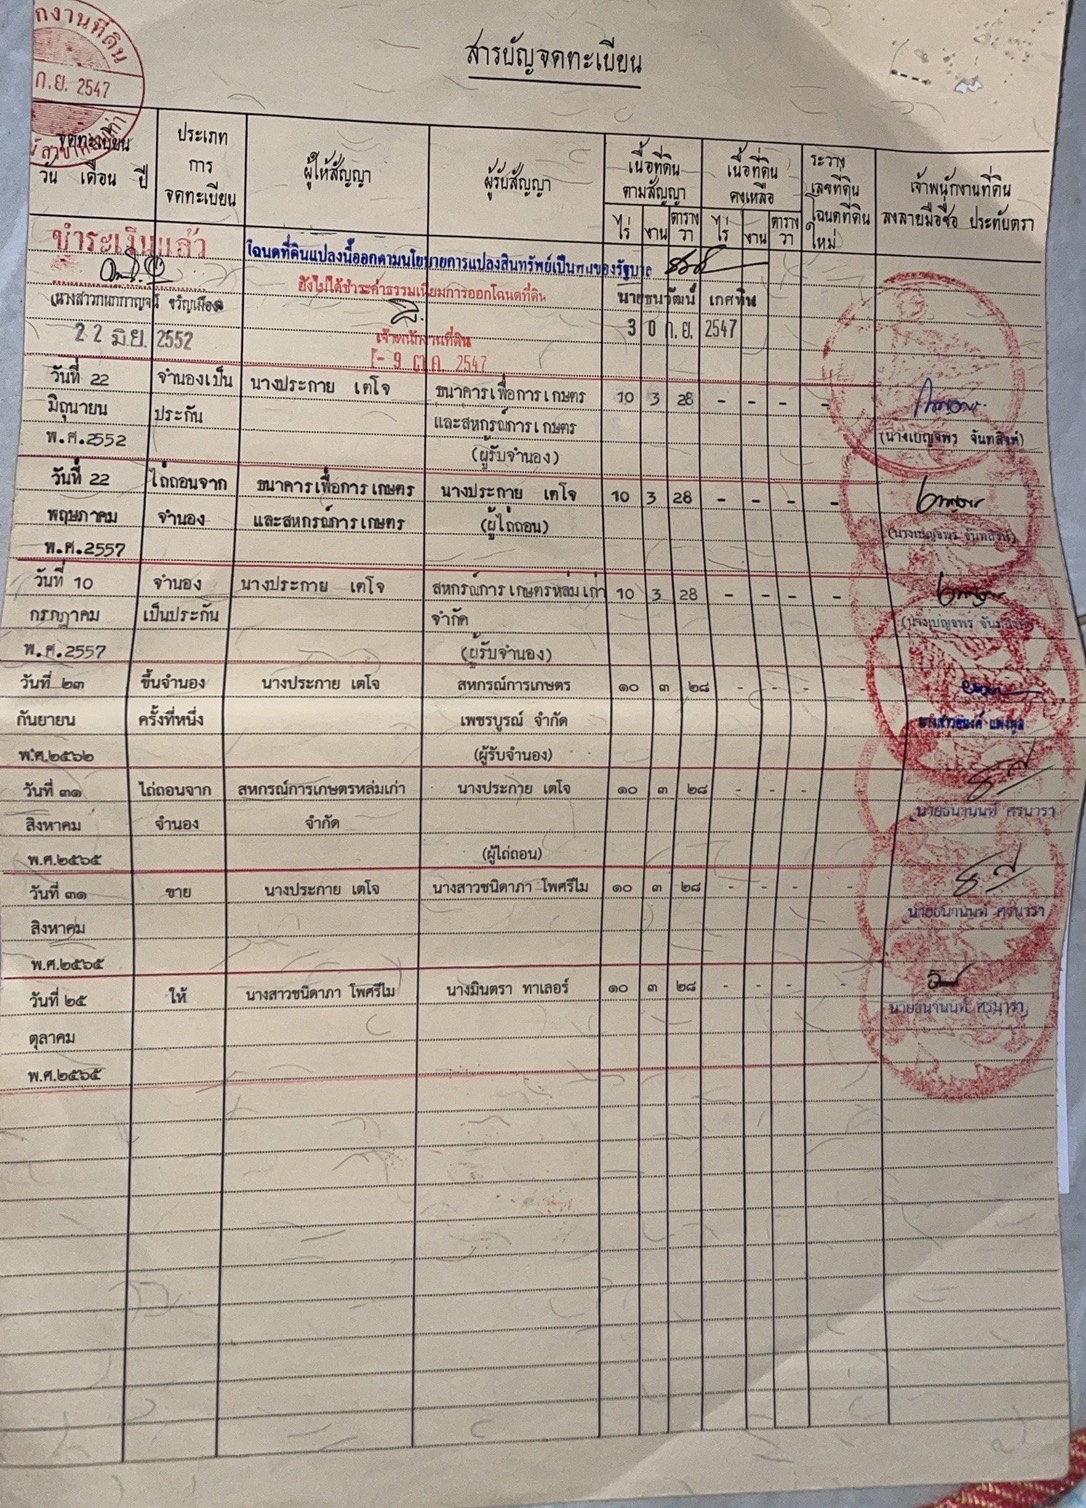 สารบัญจดทะเบียน
ก.ย. 2547
จดทะเบียน
วัน เดือน ปี
ประเภท
การ
จดทะเบียน
ผู้ให้สัญญา
ผู้รับสัญญา
เนื้อที่ดิน
ตามสัญญา
ไร่ งาน ตาราง
วา
เนื้อที่ดิน
คงเหลือ
ไร่ งาน ตาราง
วา
ระวาง
เลขที่ดิน
โฉนดที่ดิน
ใหม่
เจ้าพนักงานที่ดิน
ลงลายมือชื่อ ประทับตรา
ชำระเงินแล้ว
22 มิ.ย. 2552
โฉนดที่ดินแปลงนี้ออกตามนโยบายการแปลงสินทรัพย์เป็นทุนของรัฐบาล
ยังไม่ได้ชำระค่าธรรมเนียมการออกโฉนดที่ดิน
เจ้าพนักงานที่ดิน
- 9 ต.ค. 2547
นายธนวัฒน์ เกศทิน
30 ก.ย. 2547
วันที่ 22 จำนองเป็น นางประกาย เตโจ ธนาคารเพื่อการเกษตร 10 3 28 - - - -
มิถุนายน ประกัน และสหกรณ์การเกษตร
พ.ศ.2552 (ผู้รับจำนอง) (นางเบญจพร จันทสิงห์)
วันที่ 22 ไถ่ถอนจาก ธนาคารเพื่อการเกษตร นางประกาย เตโจ 10 3 28 - - - -
พฤษภาคม จำนอง และสหกรณ์การเกษตร (ผู้ไถ่ถอน) (นางเบญจพร จันทสิงห์)
พ.ศ.2557
วันที่ 10 จำนอง นางประกาย เตโจ สหกรณ์การเกษตรหล่มเก่า 10 3 28 - - - -
กรกฎาคม เป็นประกัน จำกัด (นางเบญจพร จันทสิงห์)
พ.ศ.2557 (ผู้รับจำนอง)
วันที่ ๒๓ ขึ้นจำนอง นางประกาย เตโจ สหกรณ์การเกษตร ๑๐ ๓ ๒๘ - - - -
กันยายน ครั้งที่หนึ่ง เพชรบูรณ์ จำกัด
พ.ศ.๒๕๖๒ (ผู้รับจำนอง)
วันที่ ๓๑ ไถ่ถอนจาก สหกรณ์การเกษตรหล่มเก่า นางประกาย เตโจ ๑๐ ๓ ๒๘ - - -
สิงหาคม จำนอง จำกัด นายธนานนท์ ศรนารา
พ.ศ.๒๕๖๕ (ผู้ไถ่ถอน)
วันที่ ๓๑ ขาย นางประกาย เตโจ นางสาวชนิดาภา โพศรีไม ๑๐ ๓ ๒๘ - - - -
สิงหาคม นายธนานนท์ ศรนารา
พ.ศ.๒๕๖๕
วันที่ ๒๕ ให้ นางสาวชนิดาภา โพศรีไม นางมินตรา ทาเลอร์ ๑๐ ๓ ๒๘ - - - -
ตุลาคม นายธนานนท์ ศรนารา
พ.ศ.๒๕๖๕